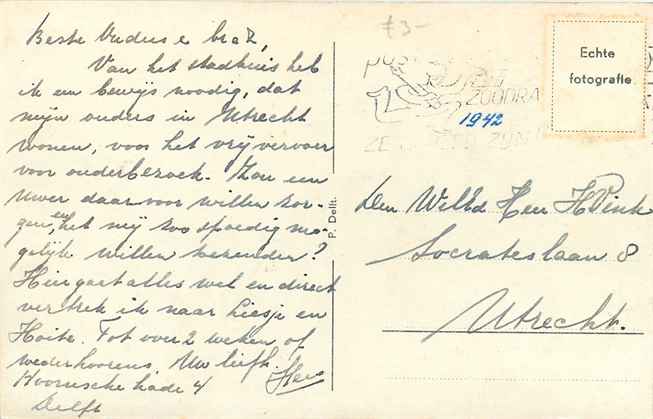 Beste Ouders e broz,
Van het stadhuis heb
ik een bewijs noodig, dat
mijn ouders in Utrecht
wonen, voor het vrij vervoer
voor ouderbezoek. Zou een
Uwer daar voor willen zor-
gen, en het mij zoo spoedig mo-
gelijk willen toezenden?
Hier gaat alles wel en direct
vertrek ik naar Liesje en
Hoite. Tot over 2 weken of
wederhoorens. Uw liefh.
Hoornsche kade 4
Delft
P. Delft.
£3-
POST
ZOODRA
1942
ZE ZIJN
Echte
fotografie
Den WelEd Heer H Vink
Socrateslaan 8
Utrecht.